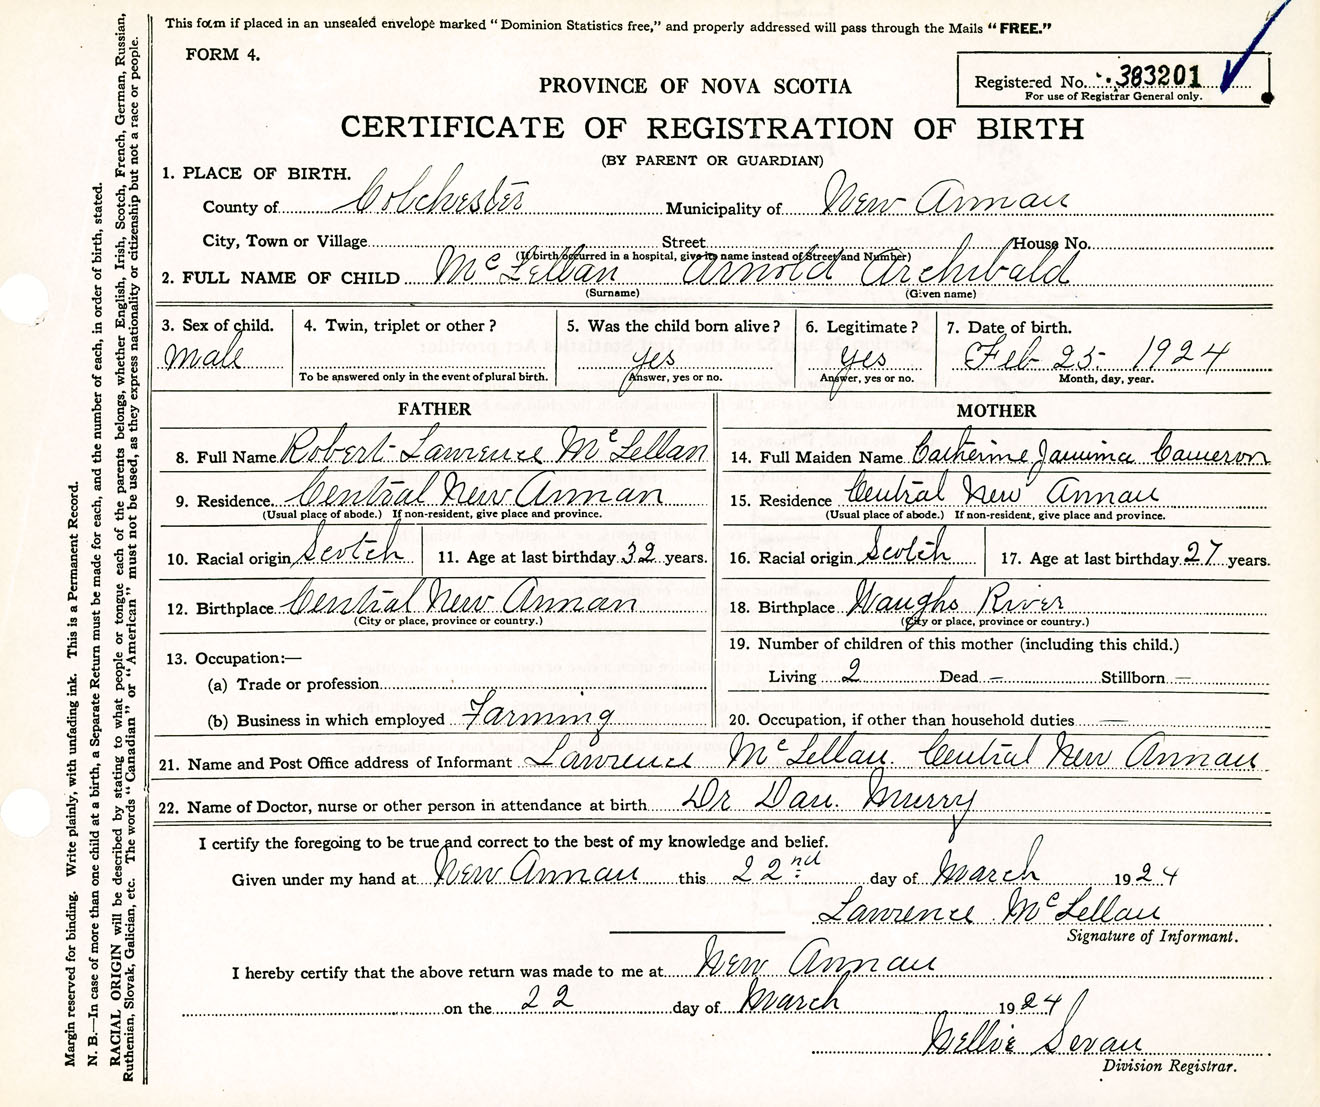 This form if placed in an unsealed envelope marked "Dominion Statistics free," and properly addressed will pass through the Mails "FREE."
FORM 4.
Registered No. 383201
For use of Registrar General only.
PROVINCE OF NOVA SCOTIA
CERTIFICATE OF REGISTRATION OF BIRTH
(BY PARENT OR GUARDIAN)
1. PLACE OF BIRTH.
County of Colchester Municipality of New Annan
City, Town or Village Street House No.
(If birth occurred in a hospital, give its name instead of Street and Number)
2. FULL NAME OF CHILD McLellan Arnold Archibald
(Surname) (Given name)
3. Sex of child. 4. Twin, triplet or other? 5. Was the child born alive? 6. Legitimate? 7. Date of birth.
Male yes yes Feb 25 1924
To be answered only in the event of plural birth. Answer, yes or no. Answer, yes or no. Month, day, year.
FATHER
8. Full Name Robert Lawrence McLellan
9. Residence Central New Annan
(Usual place of abode.) If non-resident, give place and province.
10. Racial origin Scotch 11. Age at last birthday 32 years.
12. Birthplace Central New Annan
(City or place, province or country.)
13. Occupation:—
(a) Trade or profession
(b) Business in which employed Farming
MOTHER
14. Full Maiden Name Catherine Jamima Cameron
15. Residence Central New Annan
(Usual place of abode.) If non-resident, give place and province.
16. Racial origin Scotch 17. Age at last birthday 27 years.
18. Birthplace Waughs River
(City or place, province or country.)
19. Number of children of this mother (including this child.)
Living 2 Dead — Stillborn —
20. Occupation, if other than household duties —
21. Name and Post Office address of Informant Lawrence McLellan. Central New Annan
22. Name of Doctor, nurse or other person in attendance at birth Dr Dan. Murry
I certify the foregoing to be true and correct to the best of my knowledge and belief.
Given under my hand at New Annan this 22nd day of March 1924
Lawrence McLellan
Signature of Informant.
I hereby certify that the above return was made to me at New Annan
on the 22 day of March 1924
Nellie
Division Registrar.
Margin reserved for binding. Write plainly, with unfading ink. This is a Permanent Record.
N. B.—In case of more than one child at a birth, a Separate Return must be made for each, and the number of each, in order of birth, stated.
RACIAL ORIGIN will be described by stating to what people or tongue each of the parents belongs, whether English, Irish, Scotch, French, German, Russian,
Ruthenian, Slovak, Galician, etc. The words "Canadian" or "American" must not be used, as they express nationality or citizenship but not a race or people.